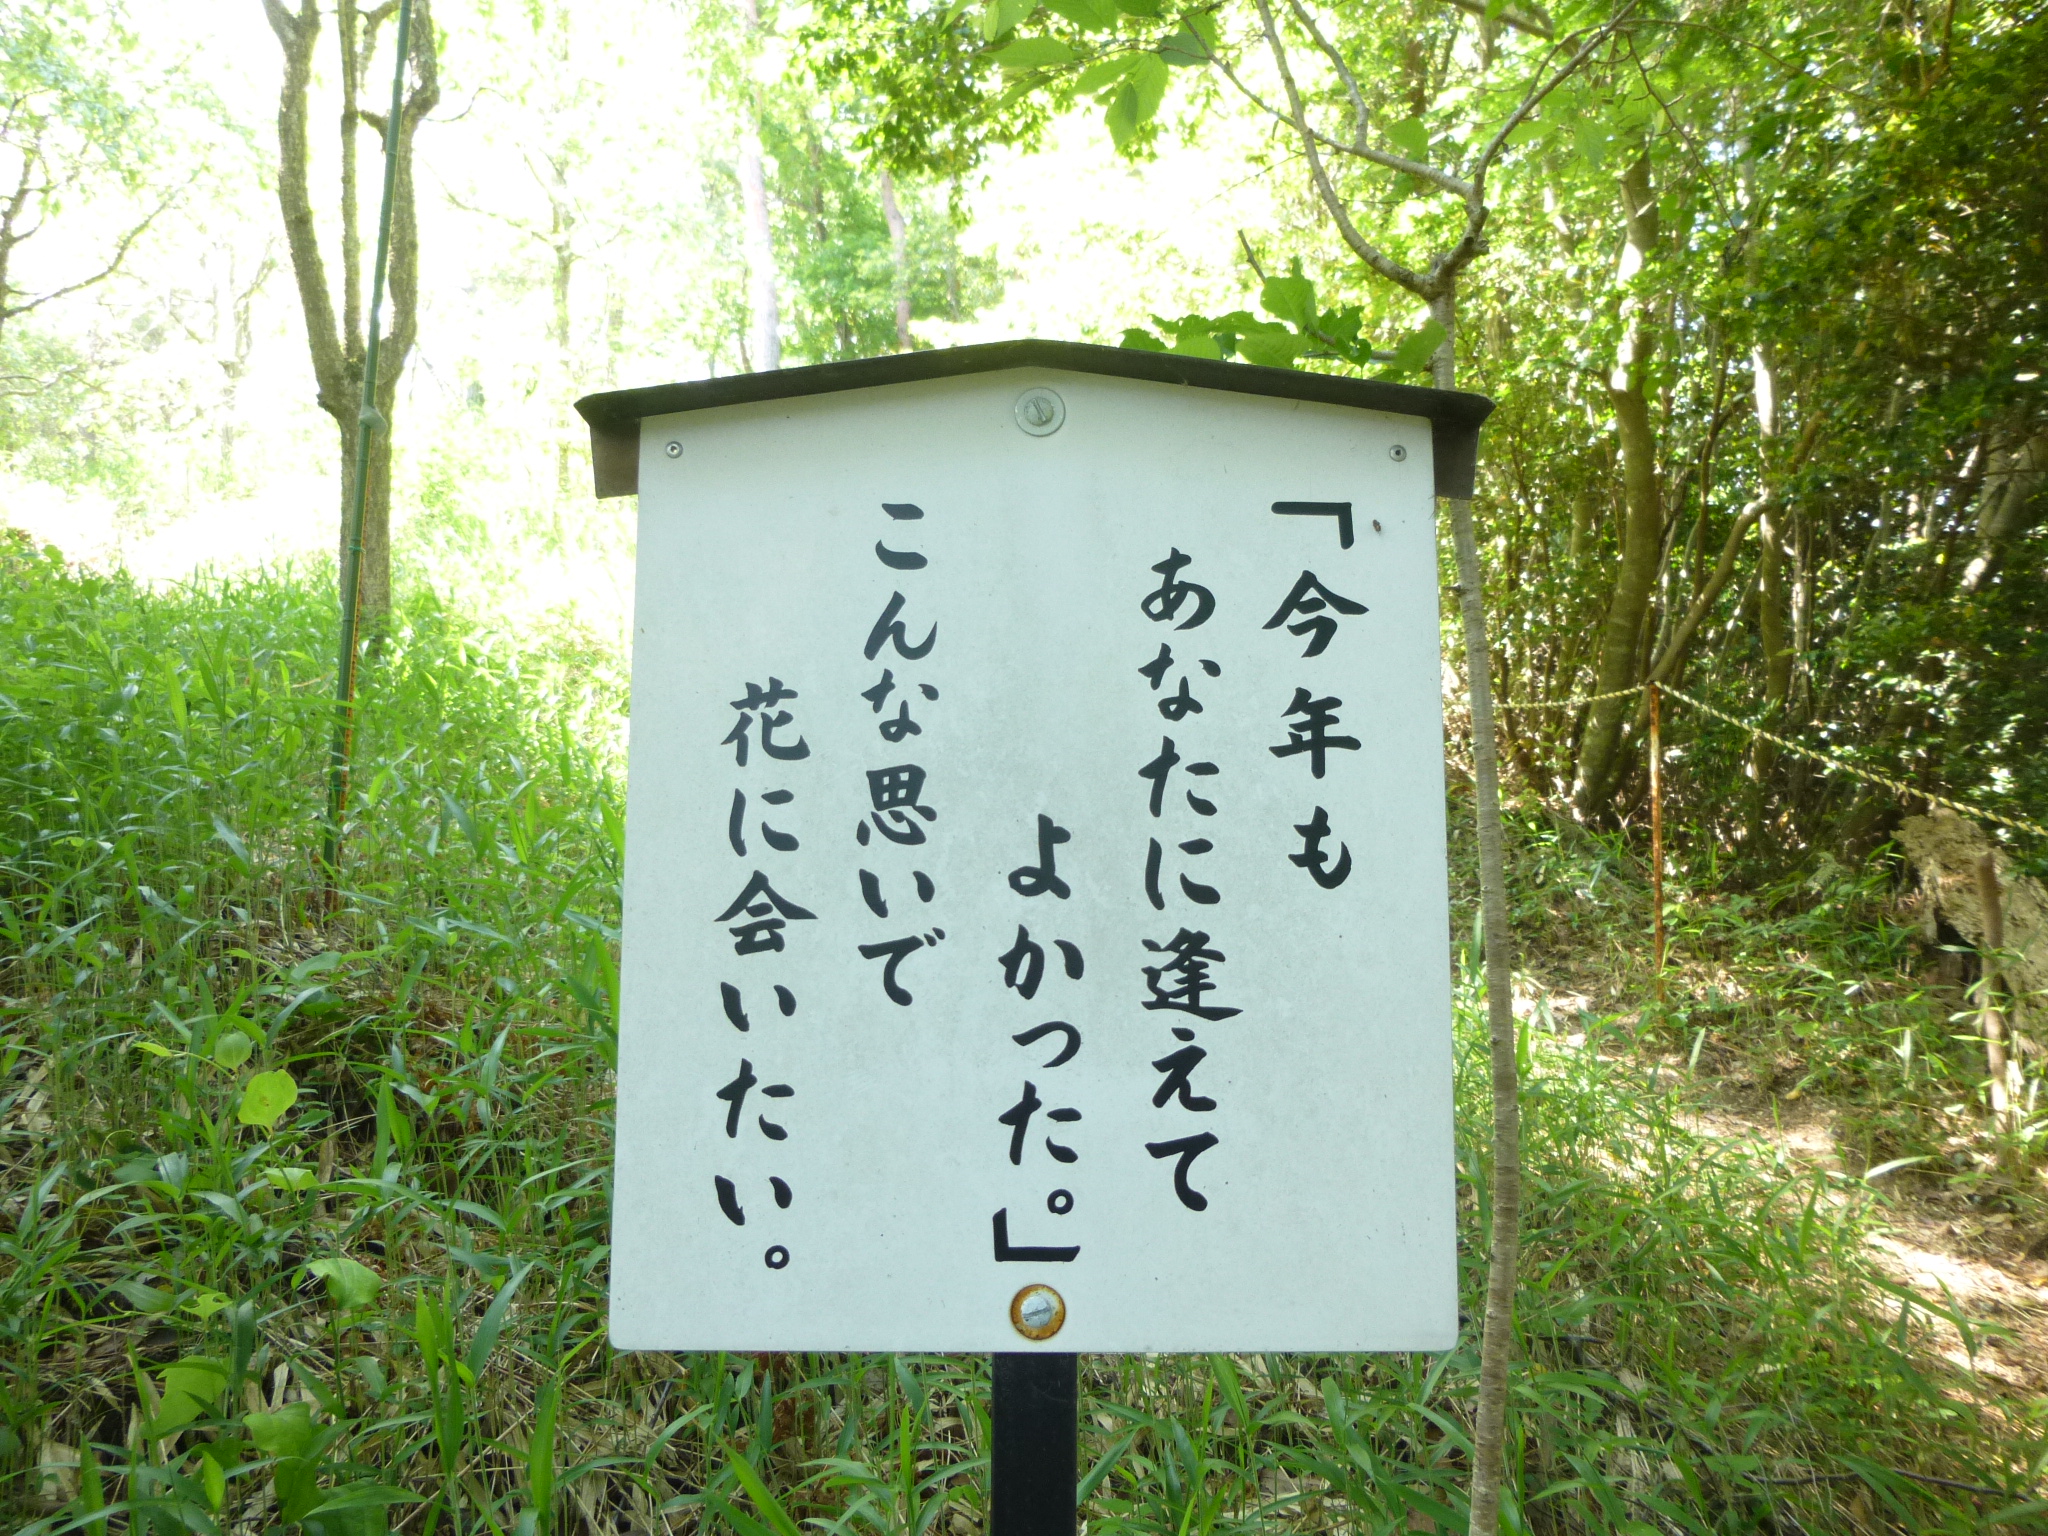 「今年も
あなたに逢えて
よかった。」
こんな思いで
花に会いたい。